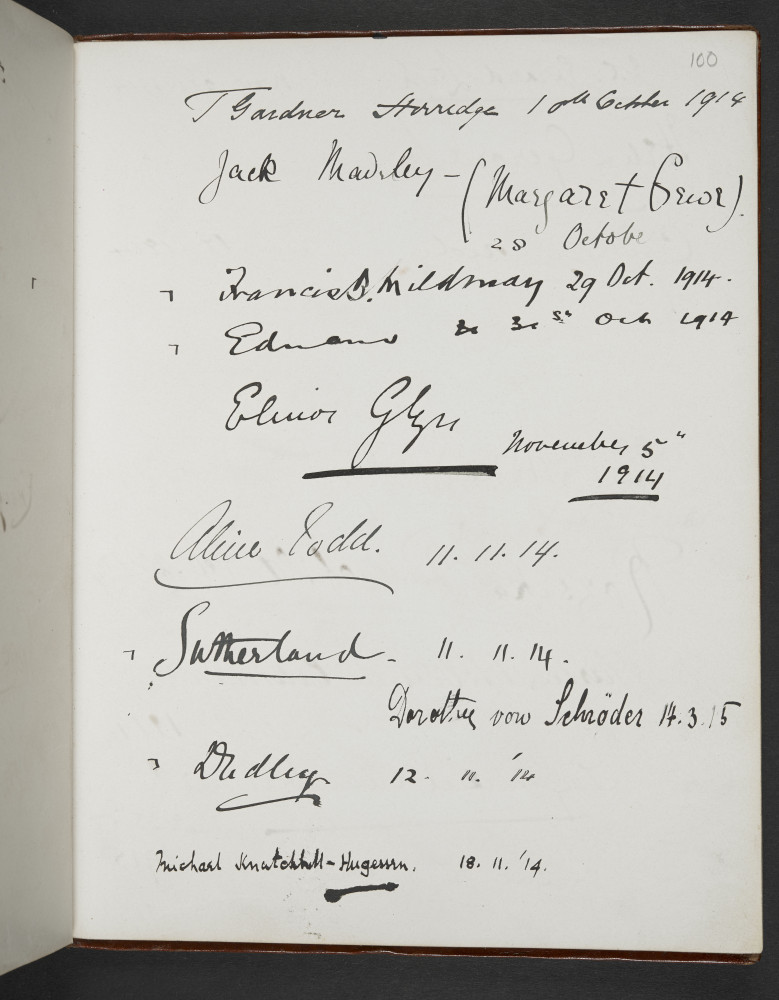 100
T Gardner Horridge 10th October 1914
Jack Madsley - (Margaret Crewe).
28 October
Francis B. Mildmay 29 Oct. 1914.
Edmund 31st Oct 1914
Elinor Glyn
November 5"
1914
Alice Todd. 11. 11. 14.
Sutherland - 11. 11. 14.
Dorothy von Schröder 14.3.15
Dudley 12. 11. '14
Michael Knatchbull-Hugessen. 18. 11. '14.